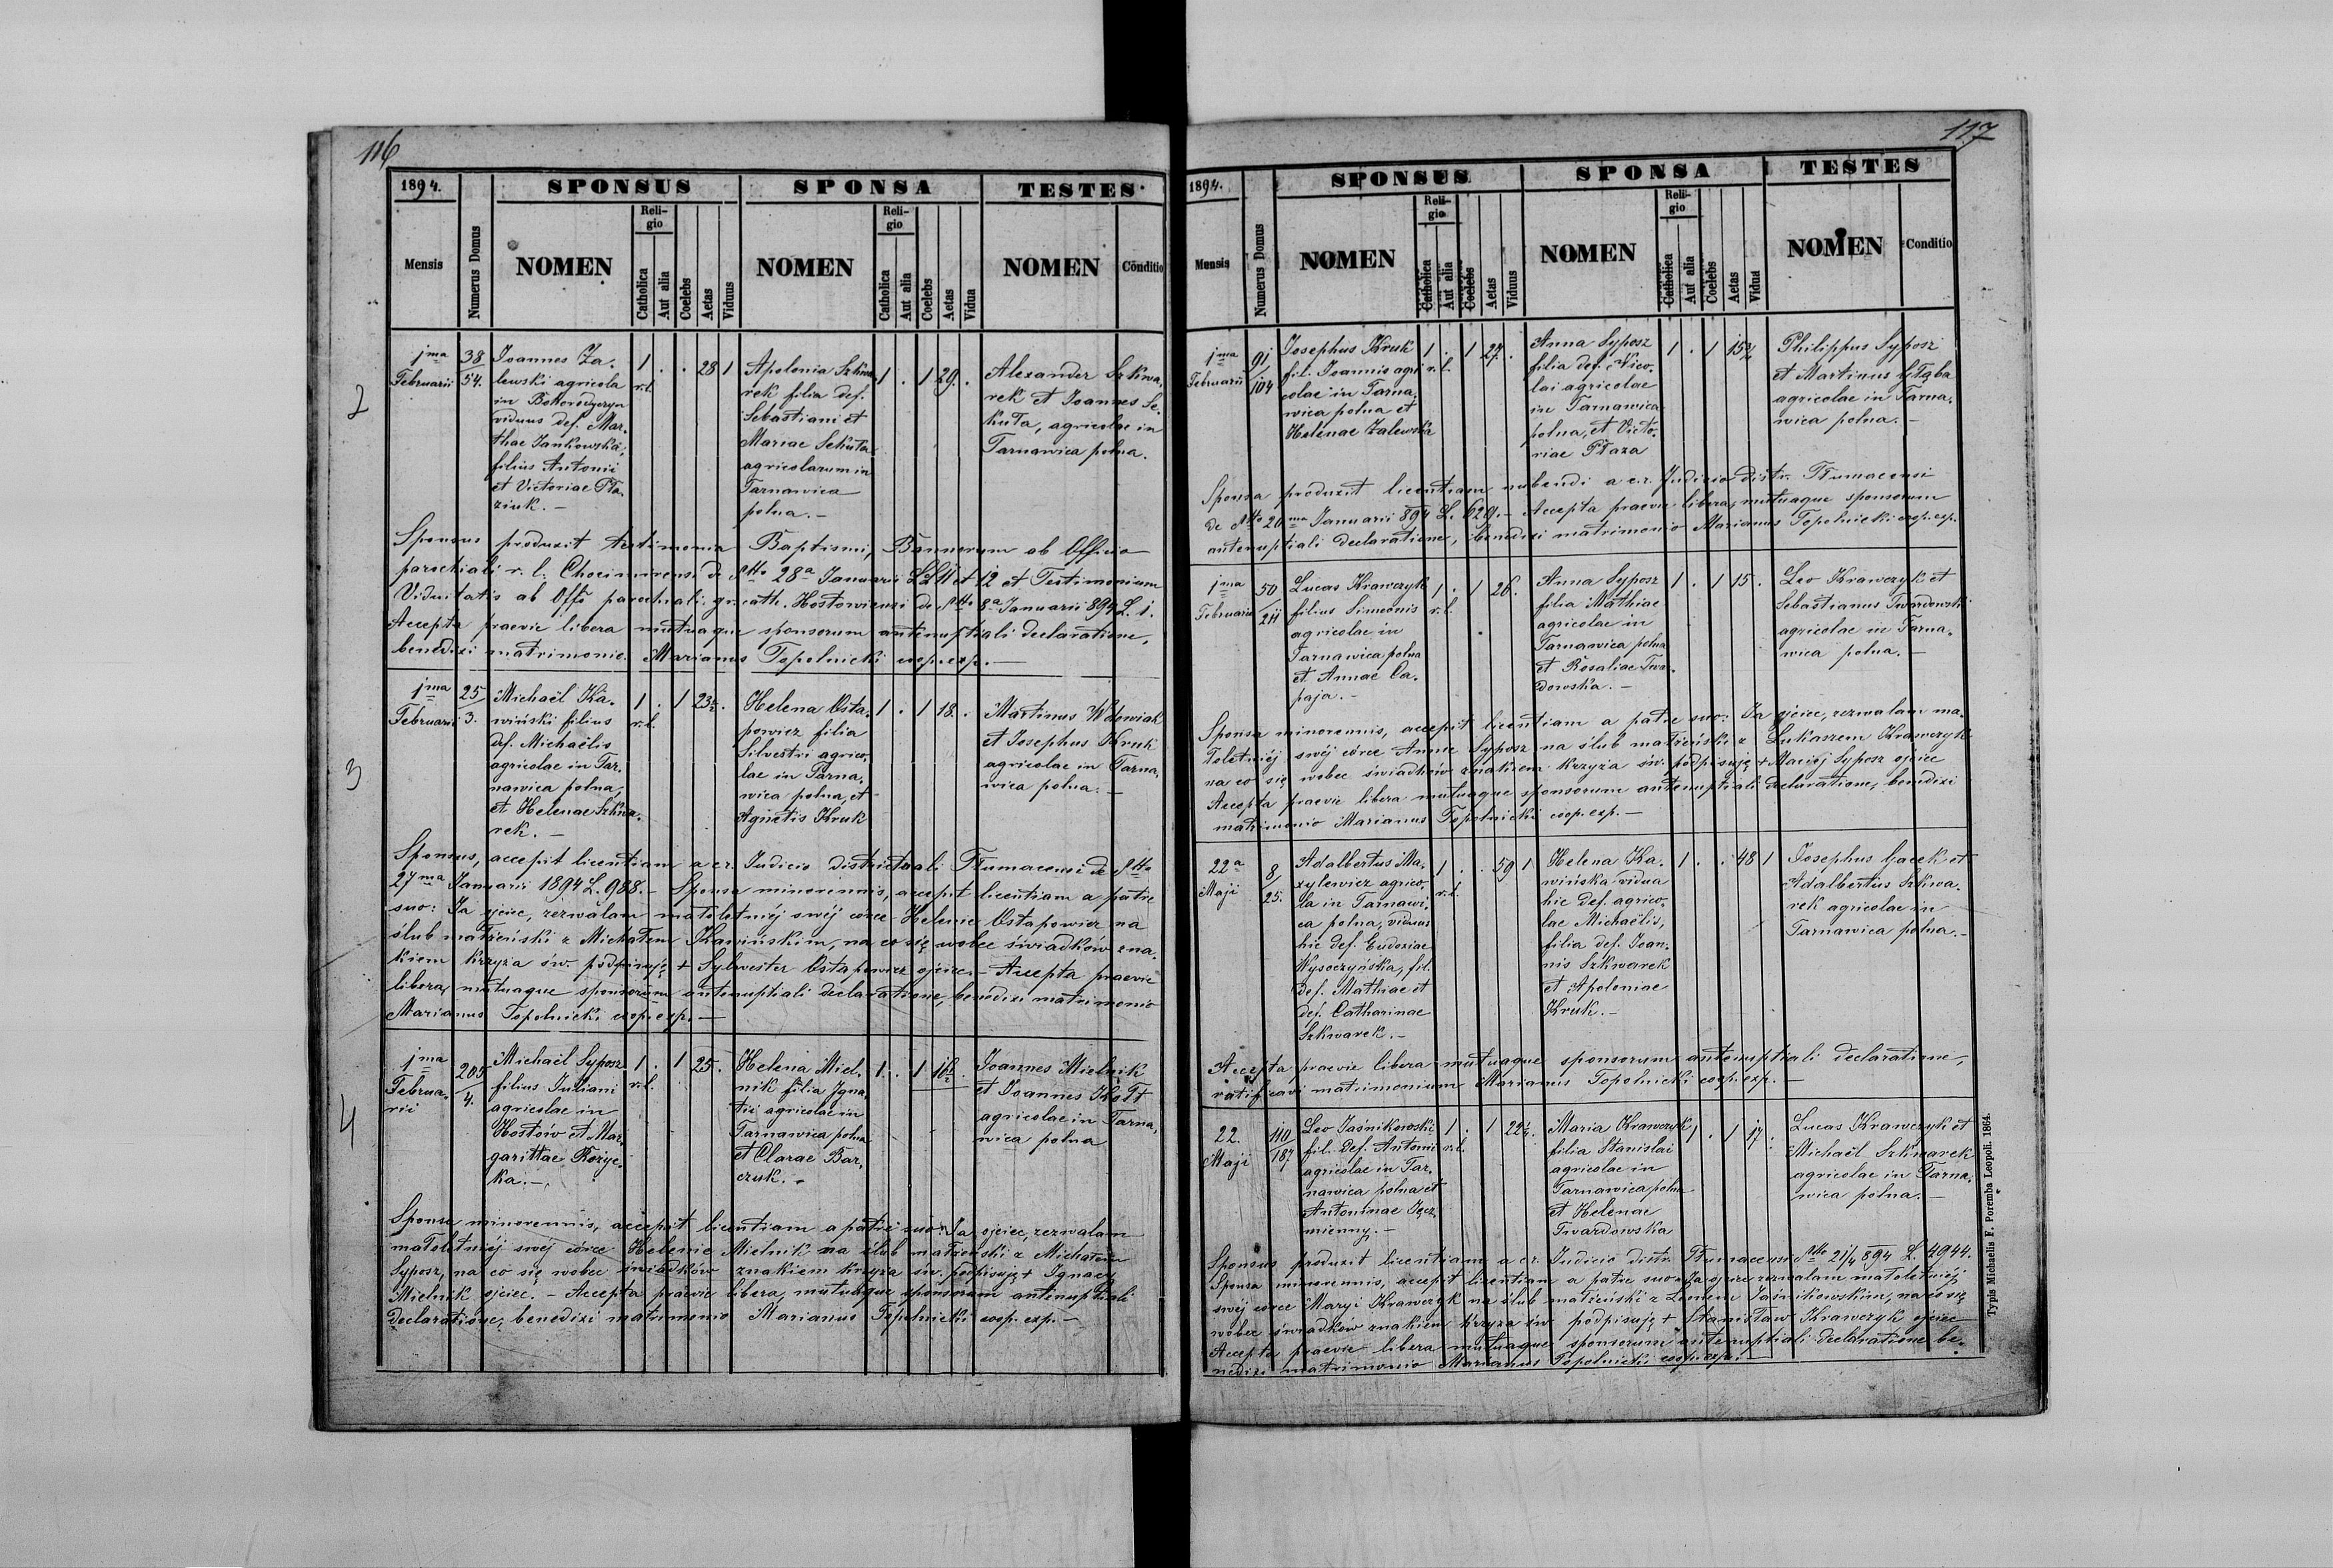 116
1894.
SPONSUS
SPONSA
TESTES
Mensis
Numerus Domus
NOMEN
Religio
Catholica
Aut alia
Coelebs
Aetas
Viduus
NOMEN
Religio
Catholica
Aut alia
Coelebs
Aetas
Vidua
NOMEN
Conditio
2
1ma
Februarii
38
54.
Joannes Za-
lewski agricola
in Bohorodyczyn
viduus def. Mar-
thae Jankowska,
filius Antonii
et Victoriae Pła-
ziuk. –
1 . . 28 1
r.l.
Apolonia Szkwa-
rek filia def.
Sebastiani et
Mariae Sekuta
agricolarum in
Tarnawica
polna. –
1 . 1 29. .
Alexander Szkwa-
rek et Joannes Se-
kuta, agricolae in
Tarnawica polna.
Sponsus produxit testimonia Baptismi, Bannorum ab Officio
parochiali r. l. Chocimirensi de dtto 28a Januarii LL 11 et 12 et Testimonium
Viduitatis ab Offo parochiali gr. cath. Hostowiensi de dtto 8a Januarii 894 L. 1.
Accepta praevie libera mutuaque sponsorum antenuptiali declaratione,
benedixi matrimonio. Marianus Topolnicki coop. exp. –
3
1ma
Februarii
25
3.
Michaël Ka-
wiński filius
def. Michaëlis
agricolae in Tar-
nawica polna,
et Helenae Szkwa-
rek. –
1 . 1 23½ .
r.l.
Helena Osta-
powicz filia
Silvestri agrico-
lae in Tarna-
wica polna, et
Agnetis Kruk
1 . 1 18. .
Martinus Wdowiak
et Josephus Kruk
agricolae in Tarna-
wica polna. –
Sponsus, accepit licentiam a c.r. Judicio districtuali Tłumacensi de dtto
27ma Januarii 1894 L. 988. – Sponsa minorennis, accepit licentiam a patre
suo: Ja ojciec, zezwalam małoletniéj swéj córce Helenie Ostapowicz na
ślub małżeński z Michałem Kawińskim, na co się wobec świadków zna-
kiem krzyża św. podpisuję + Sylwester Ostapowicz ojciec. – Accepta praevie
libera, mutuaque sponsorum antenuptiali declaratione, benedixi matrimonio
Marianus Topolnicki coop. exp. –
4
1ma
Februa-
rii
205
4.
Michaël Syposz
filius Juliani
agricolae in
Hostów et Mar-
garittae Rożyc-
ka. –
1 . 1 25. .
r.l.
Helena Miel-
nik filia Igna-
tii agricolae in
Tarnawica polna
et Clarae Bar-
czuk. –
1 . . 1 16½ .
Joannes Mielnik
et Joannes Kołt
agricolae in Tarna-
wica polna
Sponsa minorennis, accepit licentiam a patre suo: Ja ojciec, zezwalam
małoletniéj swej córce Helenie Mielnik na ślub małżeński z Michałem
Syposz, na co się wobec świadków znakiem krzyża św. podpisuję + Ignacy
Mielnik ojciec. – Accepta praevie libera, mutuaque sponsorum antenuptiali
declaratione, benedixi matrimonio Marianus Topolnicki coop. exp. –
117
1894.
SPONSUS
SPONSA
TESTES
Mensis
Numerus Domus
NOMEN
Religio
Catholica
Aut alia
Coelebs
Aetas
Viduus
NOMEN
Religio
Catholica
Aut alia
Coelebs
Aetas
Vidua
NOMEN
Conditio
1ma
Februarii
91
104
Josephus Kruk
fil. Joannis agri-
colae in Tarna-
wica polna et
Helenae Zalewska
1 . 1 27. .
r.l.
Anna Syposz
filia def. Nico-
lai agricolae
in Tarnawica
polna, et Victo-
riae Płaza
1 . 1
Philippus Syposz
et Martinus Głąba
agricolae in Tarna-
wica polna. –
Sponsa produxit licentiam nubendi a c.r. Judicio distr. Tłumacensi
de dtto 20ma Januarii 894 L. 629. – Accepta praevie libera, mutuaque sponsorum
antenuptiali declaratione, benedixi matrimonio Marianus Topolnicki coop. exp.
1ma
Februarii
50
211
Lucas Krawczyk
filius Simeonis
agricolae in
Tarnawica polna
et Annae Ca-
paja. –
1 . 1 26. .
r.l.
Anna Syposz
filia Mathiae
agricolae in
Tarnawica polna
et Rosaliae Twar-
dowska. –
1 . 1 15. .
Leo Krawczyk et
Sebastianus Twardowski
agricolae in Tarna-
wica polna. –
Sponsa minorennis, accepit licentiam a patre suo: Ja ojciec, zezwalam ma-
łoletniéj swéj córce Annie Syposz na ślub małżeński z Łukaszem Krawczyk
na co się wobec świadków znakiem krzyża św. podpisuję + Maciéj Syposz ojciec
Accepta praevie libera mutuaque sponsorum antenuptiali declaratione, benedixi
matrimonio Marianus Topolnicki coop. exp. –
22a
Maji
8
25.
Adalbertus Ma-
zylewicz agrico-
la in Tarnawi-
ca polna, viduus
hic def. Eudoxiae
Wysoczyńska, fil.
def. Mathiae et
def. Catharinae
Szkwarek. –
1 . . 59 1
r.l.
Helena Ka-
wińska vidua
hic def. agrico-
lae Michaëlis,
filia def. Joan-
nis Szkwarek
et Apoloniae
Kruk. –
1 . . 48 1
Josephus Gacek et
Adalbertus Szkwa-
rek agricolae in
Tarnawica polna. –
Accepta praevie libera mutuaque sponsorum antenuptiali declaratione,
ratificavi matrimonium Marianus Topolnicki coop. exp. –
22.
Maji
110
187
Leo Jaśnikowski
fil. def. Antonii
agricolae in Tar-
nawica polna et
Antoninae Jęcz-
mienny. –
1 . 1
r.l.
Maria Krawczyk
filia Stanislai
agricolae in
Tarnawica polna
et Helenae
Twardowska
1 . 1 17 .
Lucas Krawczyk et
Michaël Szkwarek
agricolae in Tarna-
wica polna. –
Sponsus produxit licentiam a c.r. Judicio distr. Tłumacensi dtto 21/4 894 L. 4944.
Sponsa minorennis, accepit licentiam a patre suo: Ja ojciec zezwalam małoletniéj
swéj córce Maryi Krawczyk na ślub małżeński z Leonem Jaśnikowskim, na co się
wobec świadków znakiem krzyża św. podpisuję + Stanisław Krawczyk ojciec
Accepta praevie libera mutuaque sponsorum antenuptiali declaratione be-
nedixi matrimonio Marianus Topolnicki coop. exp. –
Typis Michaelis F. Poremba Leopoli. 1864.